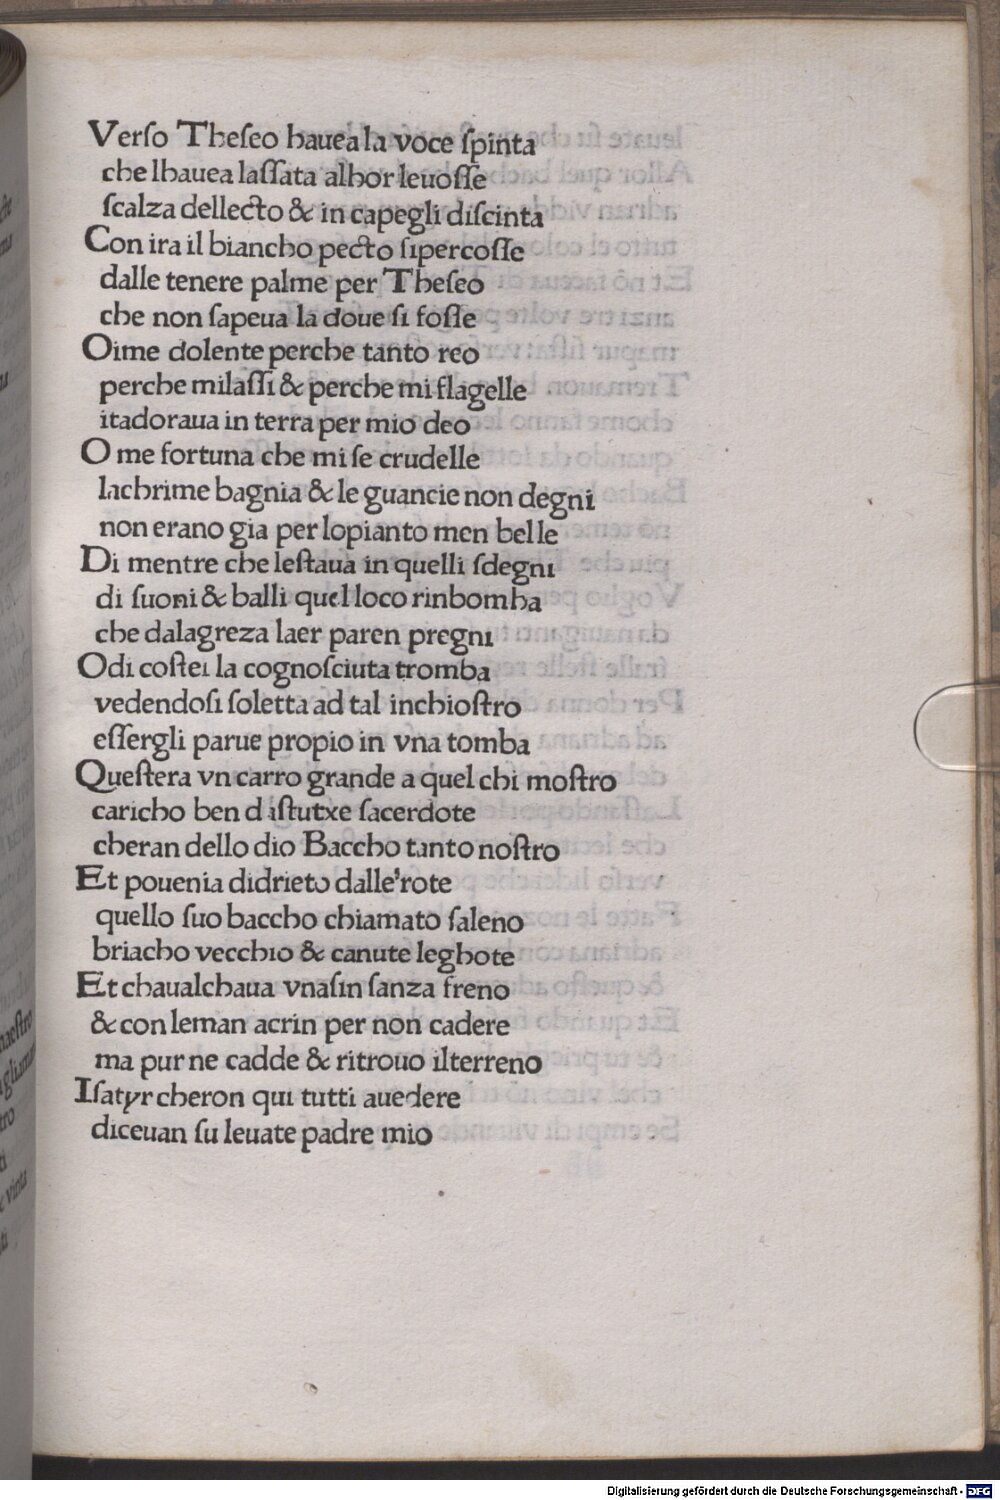 Verſo Theſeo hauea la voce ſpinta
che lhauea laſſata alhor leuoſſe
ſcalza dellecto & in capegli diſcinta
Con ira il biancho pecto ſipercoſſe
dalle tenere palme per Theſeo
che non ſapeua la doue ſi foſſe
Oime dolente perche tanto reo
perche milaſſi & perche mi flagelle
itadoraua in terra per mio deo
O me fortuna che mi ſe crudelle
lachrime bagnia & le guancie non degni
non erano gia per lopianto men belle
Di mentre che leſtaua in quelli ſdegni
di ſuoni & balli quel loco rinbomba
che dalagreza laer paren pregni
Odi coſtei la cognoſciuta tromba
vedendoſi ſoletta ad tal inchioſtro
eſſergli parue propio in vna tomba
Queſtera vn carro grande a quel chi moſtro
caricho ben d aſtutxe ſacerdote
cheran dello dio Baccho tanto noſtro
Et pouenia didrieto dalle'rote
quello ſuo baccho chiamato ſaleno
briacho vecchio & canute leghote
Et chaualchaua vnaſin ſanza freno
& con leman acrin per non cadere
ma pur ne cadde & ritrouo ilterreno
Iſatyr cheron qui tutti auedere
diceuan ſu leuate padre mio
Digitalisierung gefördert durch die Deutsche Forschungsgemeinschaft - DFG